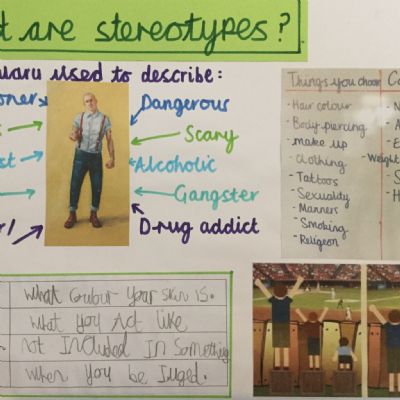 t are stereotypes?
ulary used to describe:
oner
Dangerous
Scary
st
Alcoholic
Gangster
r/
Drug addict
Things you choos
Co
- Hair colour
- Body piercing
- make up
- clothing
- Tattoos
- Sexuality
- Manners
- Smoking
- Religeon
N
A
E
Weight
S
H
what your Skin is.
what you Act like
not Included In Something
when you be Juged.